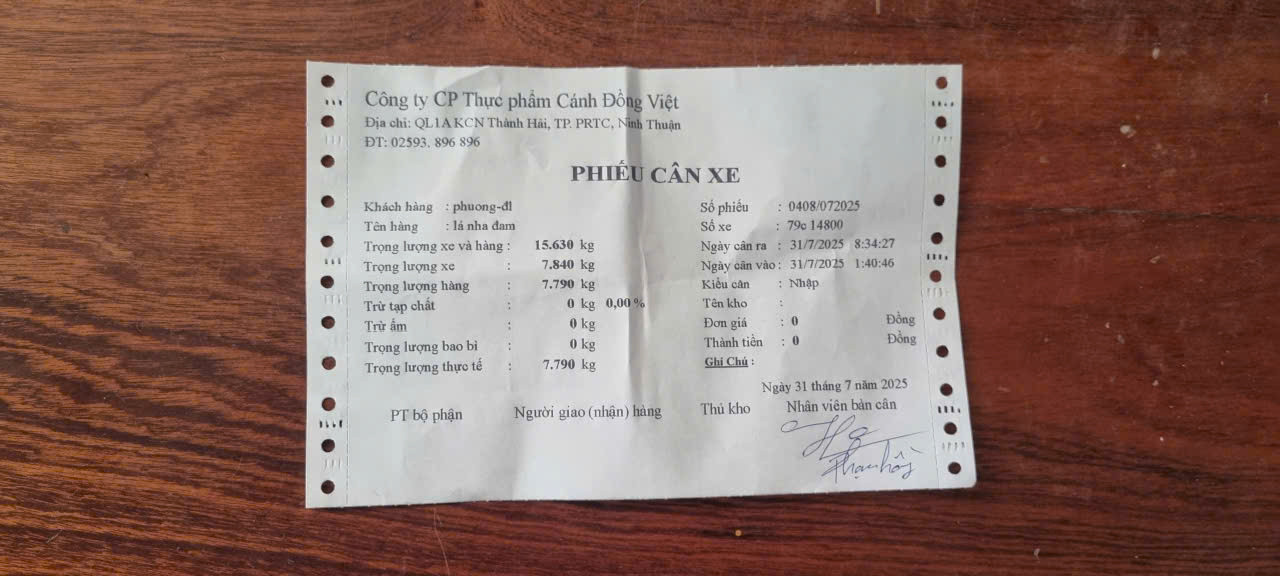 Công ty CP Thực phẩm Cánh Đồng Việt
Địa chỉ: QL1A KCN Thành Hải, TP. PRTC, Ninh Thuận
ĐT: 02593. 896 896
PHIẾU CÂN XE
Khách hàng : phuong-đl
Số phiếu : 0408/072025
Tên hàng : lá nha đam
Số xe : 79c 14800
Trọng lượng xe và hàng : 15.630 kg
Ngày cân ra : 31/7/2025 8:34:27
Trọng lượng xe : 7.840 kg
Ngày cân vào : 31/7/2025 1:40:46
Trọng lượng hàng : 7.790 kg
Kiểu cân : Nhập
Trừ tạp chất : 0 kg 0,00 %
Tên kho :
Trừ ẩm : 0 kg
Đơn giá : 0 Đồng
Trọng lượng bao bì : 0 kg
Thành tiền : 0 Đồng
Trọng lượng thực tế : 7.790 kg
Ghi Chú :
Ngày 31 tháng 7 năm 2025
PT bộ phận Người giao (nhận) hàng Thủ kho Nhân viên bàn cân